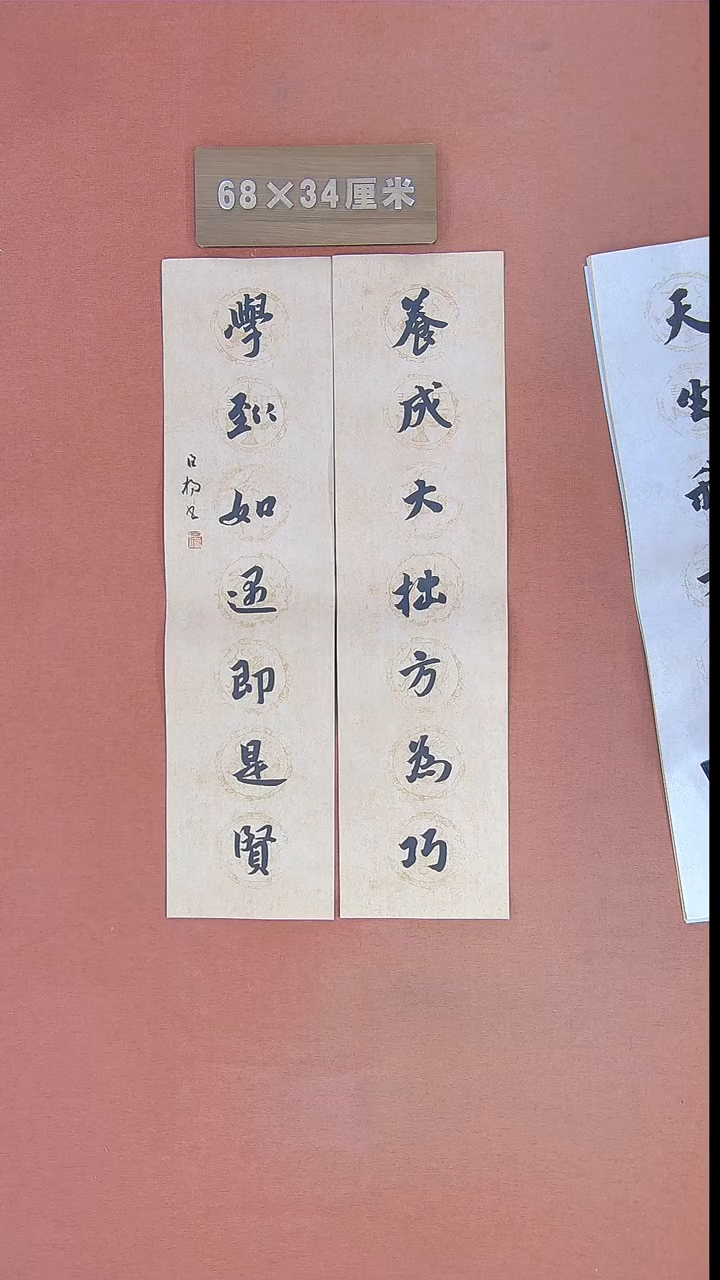 68×34厘米
養成大拙方為巧
學到如遇即是賢
天生